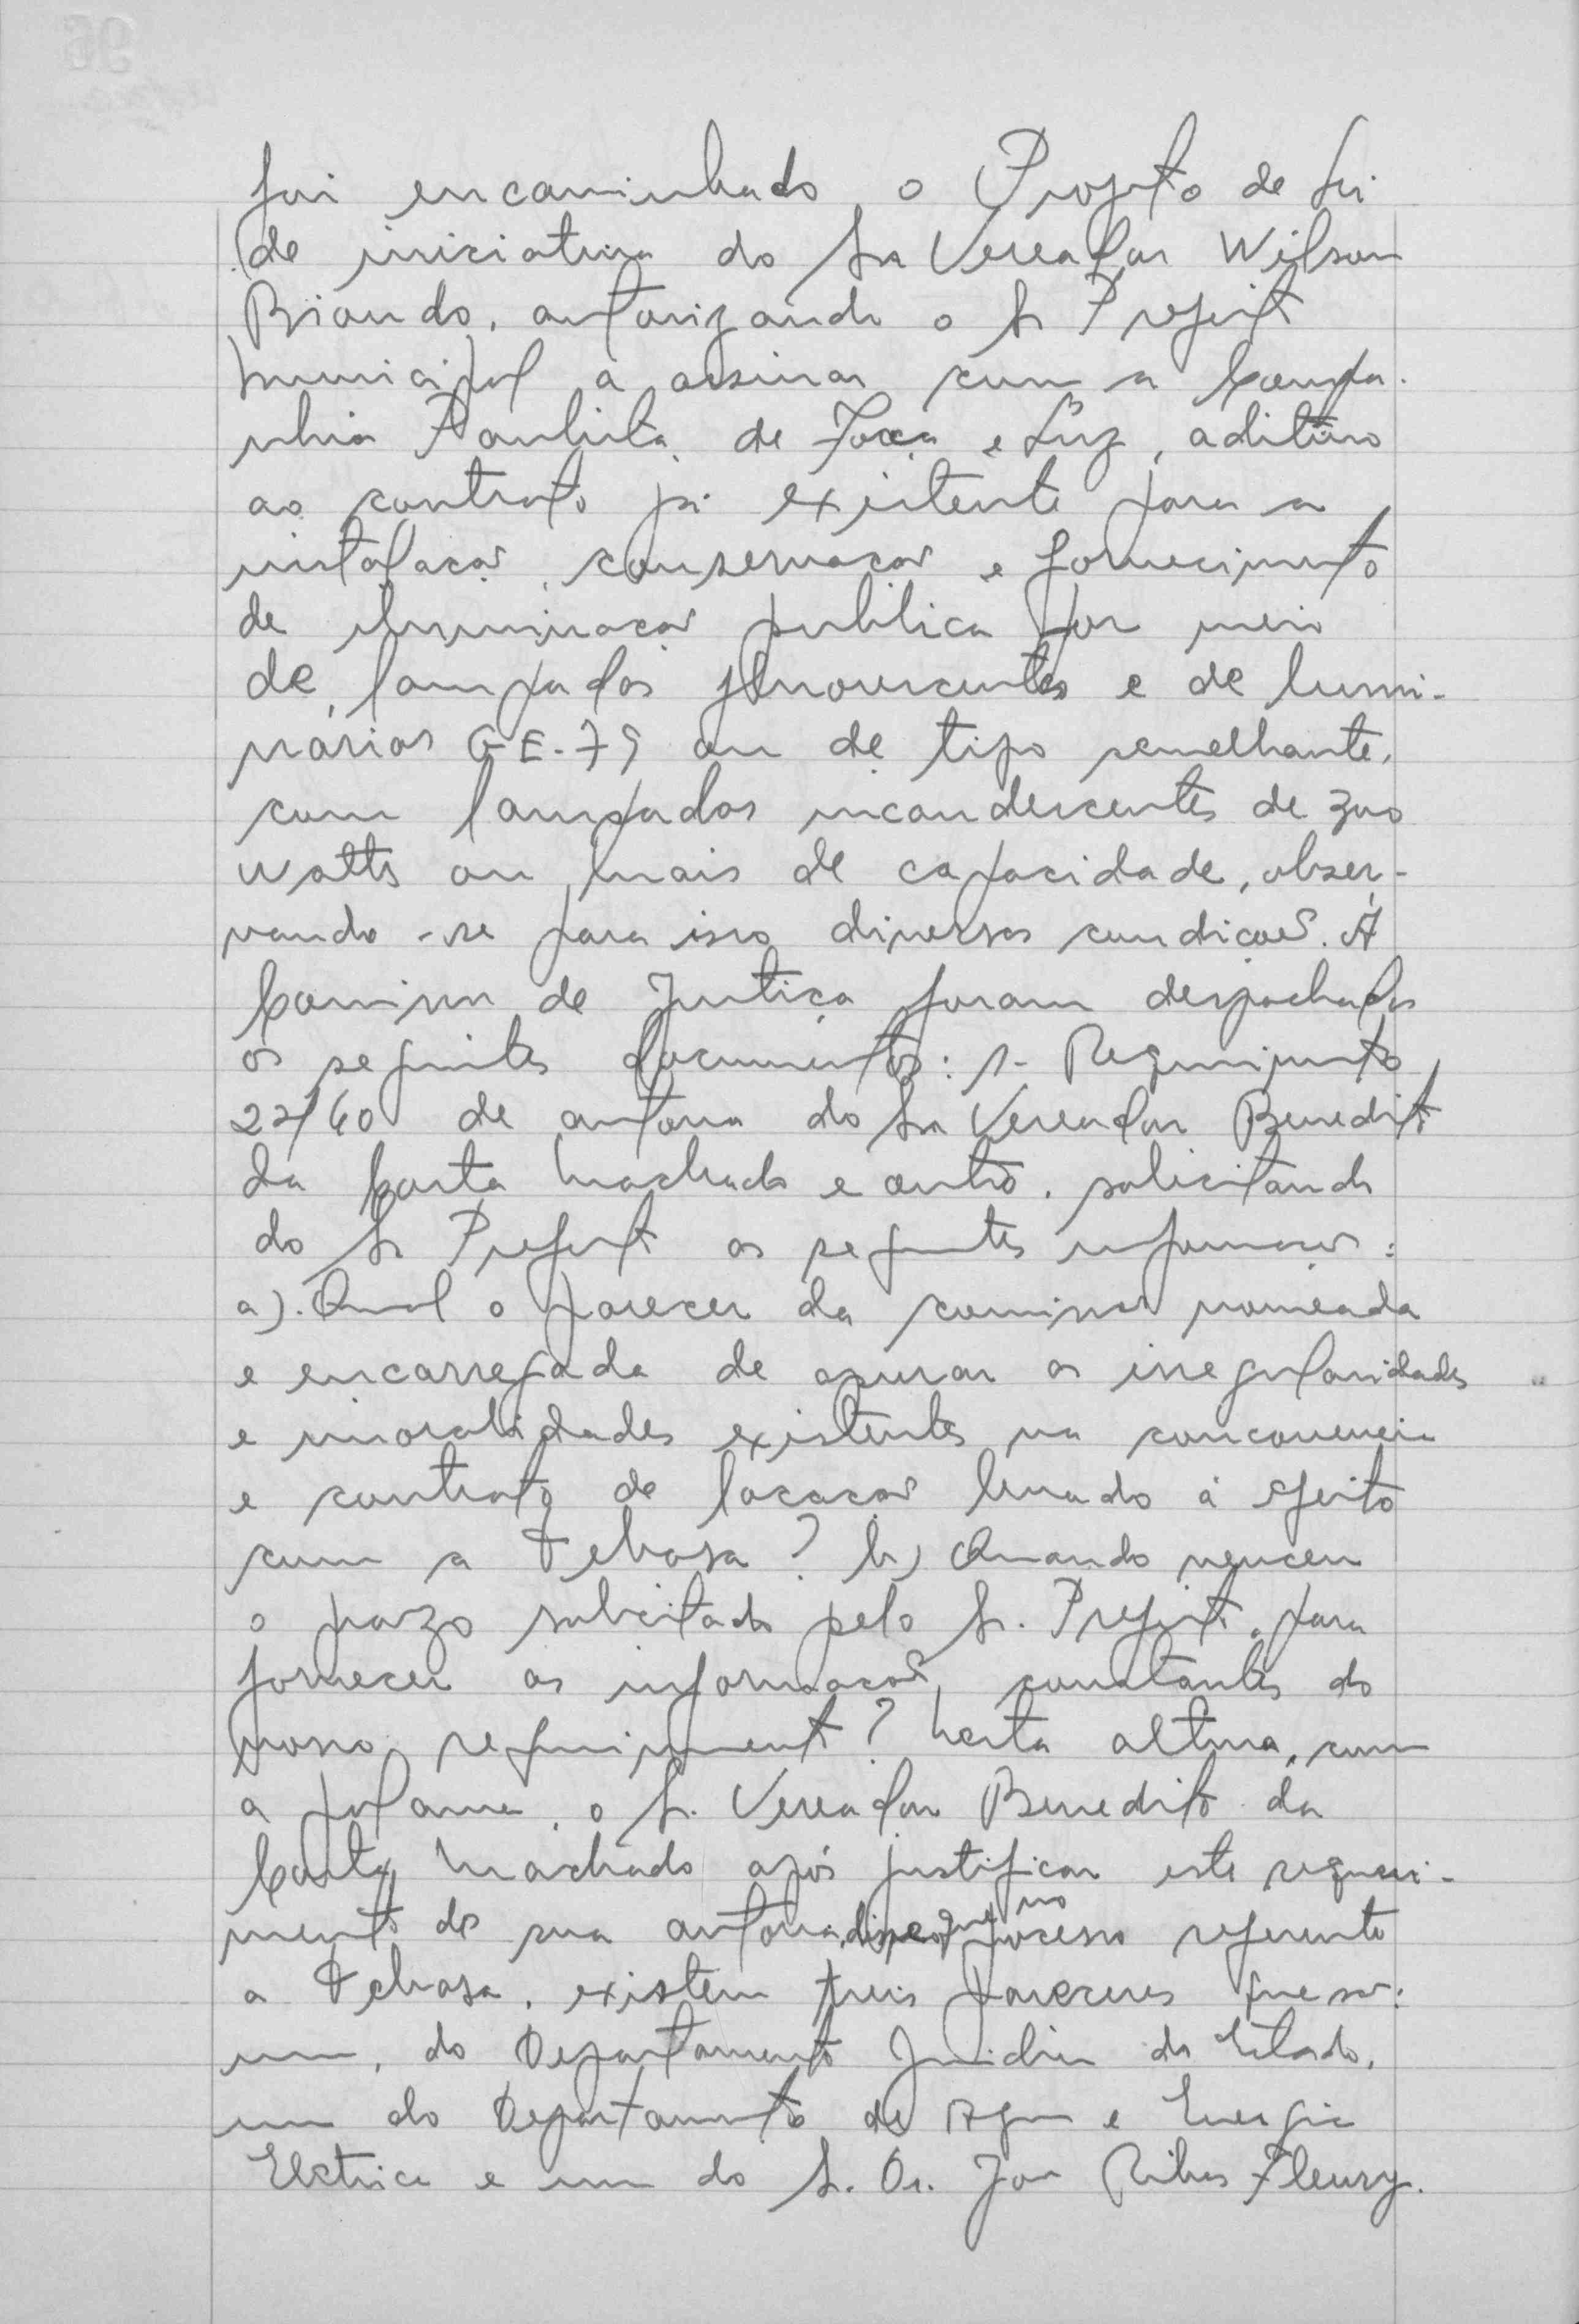 foi encaminhado o Projeto de Lei
de iniciativa do Sr Vereador Wilson
Briando, autorizando o Sr Prefeito
Municipal a assinar com a Compa-
nhia Paulista de Força e Luz, aditivo
ao contrato já existente para a
instalação, conservação e fornecimento
de iluminação publica por meio
de lampadas fluorescentes e de lumi-
nárias GE-79 ou de tipo semelhante,
com lampadas incandescentes de 300
watts ou mais de capacidade, obser-
vando-se para isso diversas condições. À
Comissão de Justiça foram despachados
os seguintes documentos: 1- Requerimento
22/60 de autoria do Sr Vereador Benedito
da Costa Machado e outro, solicitando
do Sr Prefeito as seguintes informações:
a). Qual o parecer da comissão nomeada
e encarregada de apurar as irregularidades
e imoralidades existentes na concorrencia
e contrato de locação levado à efeito
com a Tebasa? b) Quando venceu
o prazo solicitado pelo Sr. Prefeito, para
fornecer as informações constantes do
nosso requerimento? Nesta altura, com
a palavra, o Sr. Vereador Benedito da
Costa Machado após justificar este requeri-
mento de sua autoria, disse que no processo referente
a Tebasa, existem treis pareceres que são:
um, do Departamento Juridico do Estado,
um do Departamento de Agua e Energia
Eletrica e um do Sr. Dr. João Ribas Fleury.